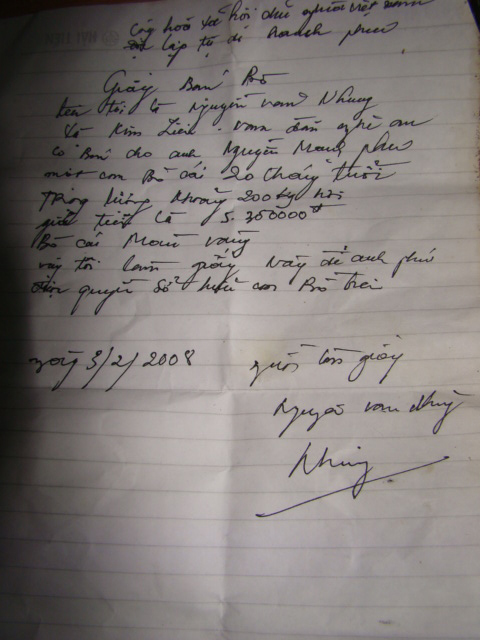 Cộng hoà xã hội chủ nghĩa việt nam
độc lập tự do hạnh phúc
Giấy Bán Bò
tên tôi là Nguyễn văn Nhung
xã Kim Liên - nam đàn nghệ an
có Bán cho anh Nguyễn phú
một con Bò cái 20 tháng tuổi
trọng lượng khoảng 200 kg hơi
giá tiền là 5.350000đ
Bò cái Màu vàng
vậy tôi làm giấy này để anh phú
quyền sở hữu con Bò trên
ngày 3/2/2008
người làm giấy
Nguyễn văn Nhung
Nhung